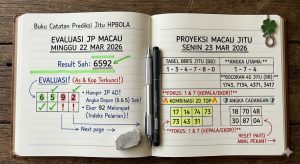 Buku Catatan Prediksi Jitu HPBOLA
EVALUASI JP MACAU
MINGGU 22 MAR 2026
Result Sah: 6592
EVALUASI! (As & Kop Terkunci!)
6 5 9 2
Hampir JP 4D!
Angka Depan (6 & 5) Sah!
Ekor 92 Melompat
(Indeks Pelarian)!
Next page
PROYEKSI MACAU JITU
SENIN 23 MAR 2026
TABEL BBFS JITU (8D):
1 - 3 - 4 - 7 - 8 - 0
**ANGKA UTAMA:
1 - 7 - 4 - 3
**BOCORAN 4D JITU (4D):
1743, 7134, 4371, 3417
*FOKUS: 1 & 7 (KEPALA/EKOR)!*
KOMBINASI 2D TOP
17 14 74 73
74 43 31
ANGKA CADANGAN
18 70 48 87
30 01 04
*FOKUS: 1 & 7 (KEPALA/EKOR)!
RESET PAITO
AWAL PEKAN!